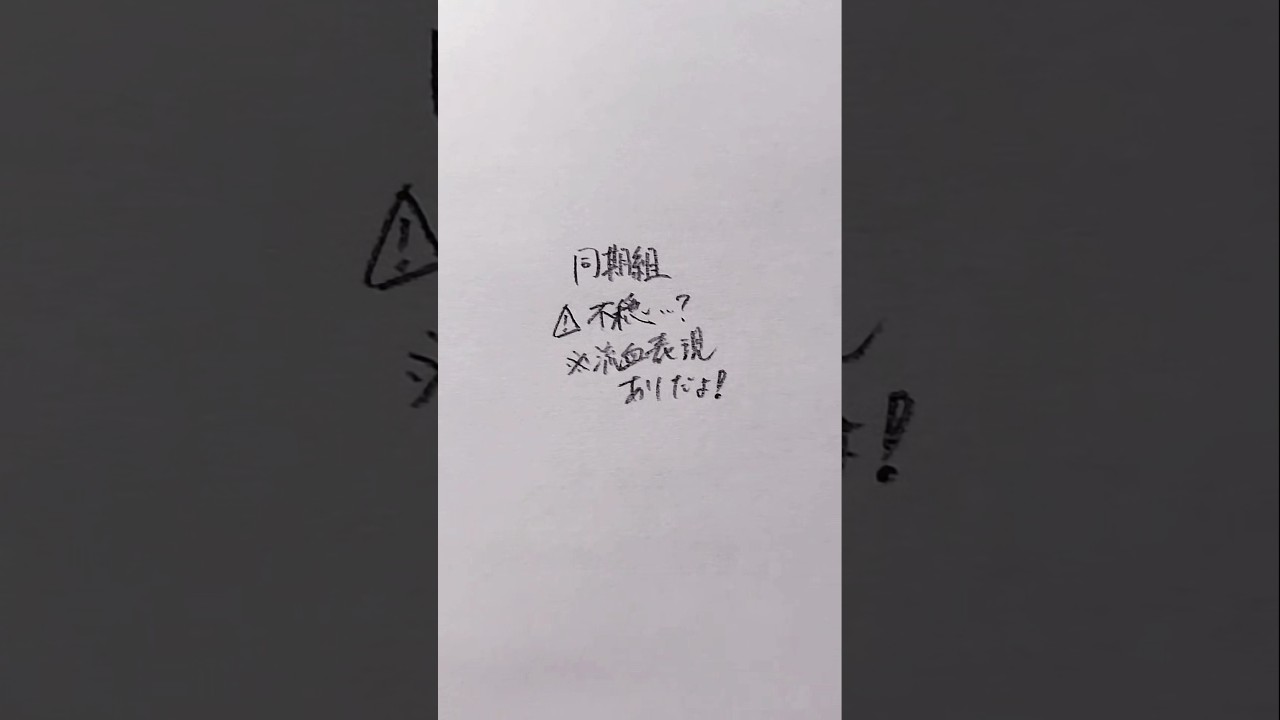 同期組
⚠不穏…?
※流血表現
ありだよ!